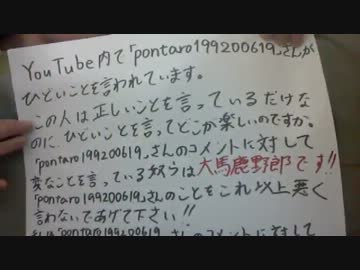 YouTube内で「pontaro199200619」さんが
ひどいことを言われています。
この人は正しいことを言っているだけな
のに、ひどいことを言ってどこが楽しいのですか。
「pontaro199200619」さんのコメントに対して
変なことを言っている奴らは大馬鹿野郎です!!
「pontaro199200619」さんのこともこれ以上悪く
言わないであげて下さい!!
「pontaro199200619」さんのコメントに対して